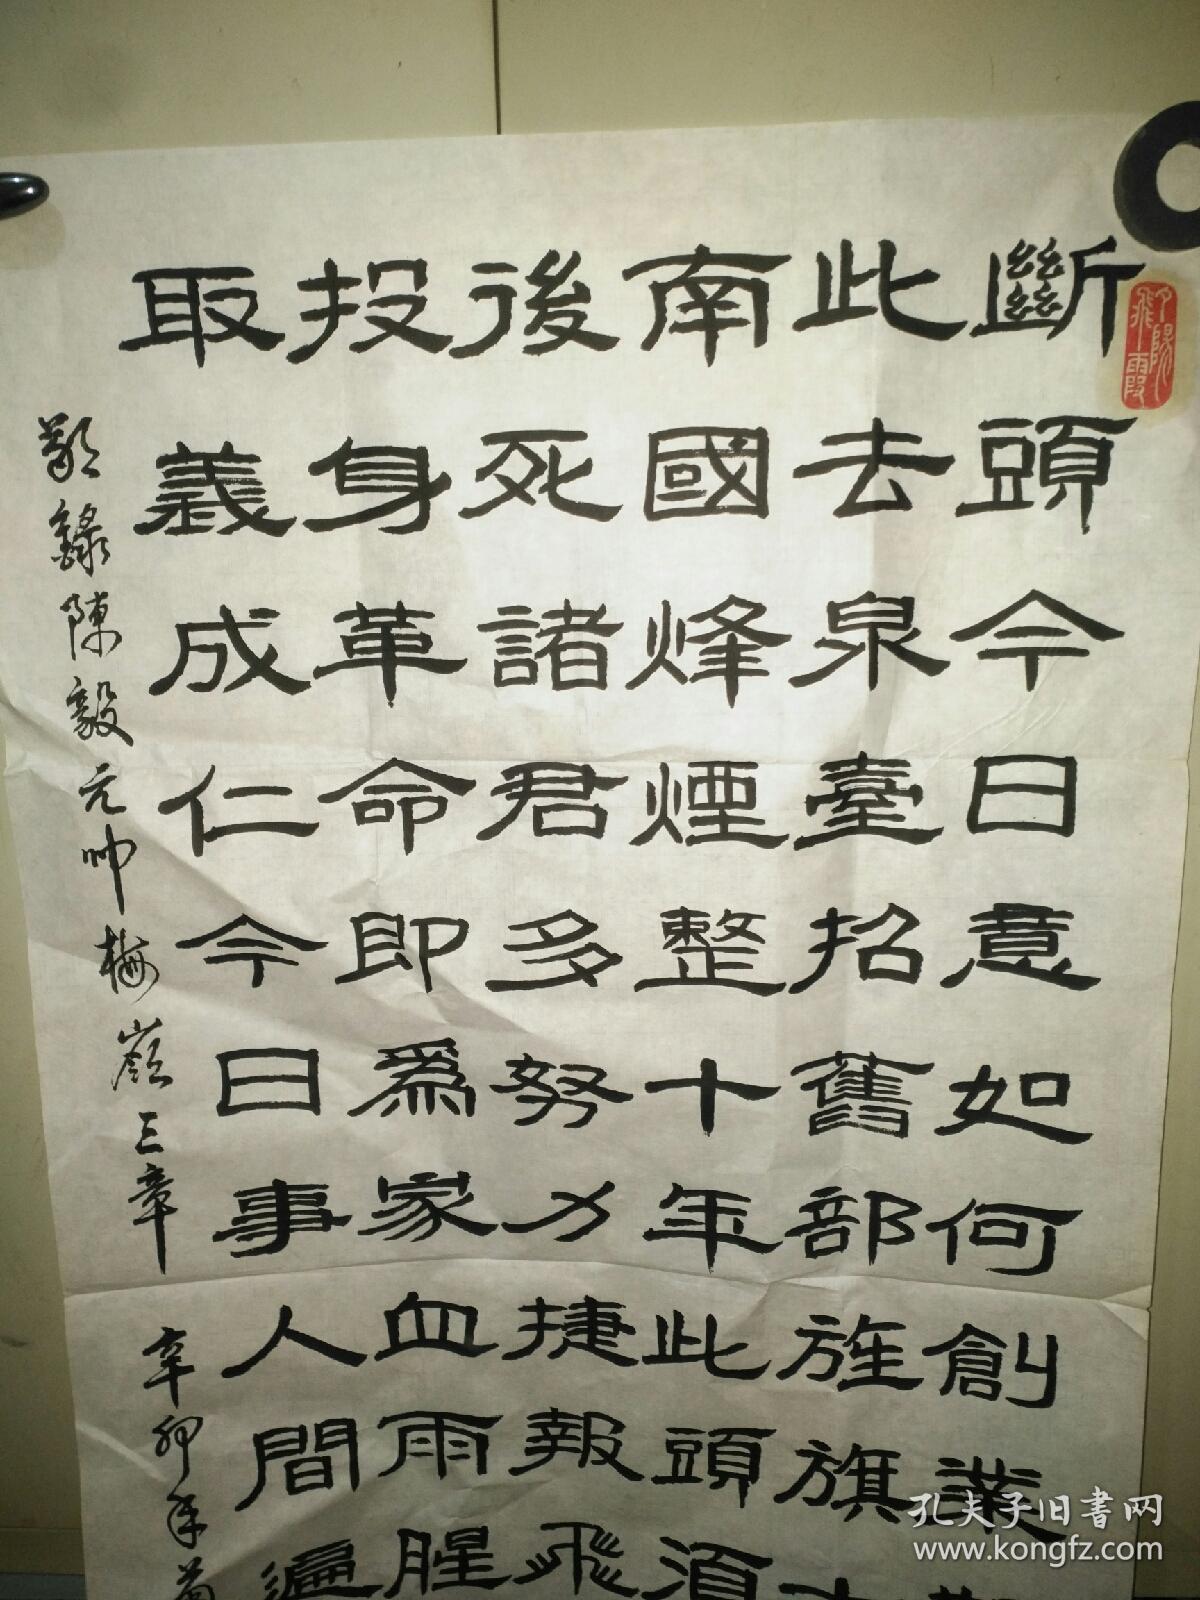 夕陽飛霞
斷頭今日意如何創業
此去泉臺招舊部旌旗
南國烽煙整十年此頭須
後死諸君多努力捷報飛
投身革命即爲家血雨腥
取義成仁今日事人間遍
敬錄陳毅元帥梅嶺三章 辛卯年
孔夫子旧書网
www.kongfz.com